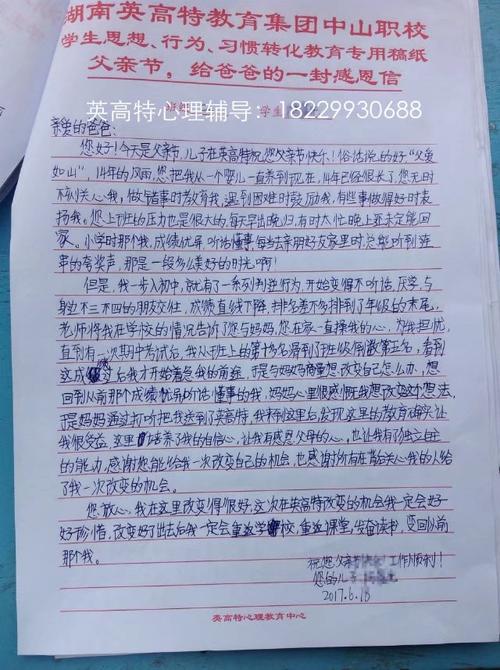 湖南英高特教育集团中山职校
学生思想、行为、习惯转化教育专用稿纸
父亲节，给爸爸的一封感恩信
英高特心理辅导：18229930688
亲爱的爸爸：
您好！今天是父亲节，儿子在英高特祝您父亲节快乐！俗话说的好“父爱
如山”，14年的风雨，您把我从一个婴儿一直养到现在，14年已经很长了，您无时
不刻关心我，做错事时教育我，遇到困难时鼓励我，有些事做得好时表
扬我。您上班的压力也是很大的，每天早出晚归，有时太忙晚上还未定能回
家。小学时那个我，成绩优异，听话懂事，每当去亲朋好友家里时，总能听到连
串的夸奖声，那是一段多么美好的时光啊！
但是，我一步入初中，就有了一系列判逆行为，开始变得不听话，厌学，与
身边不三不四的朋友交往，成绩直线下降，排名差不多排到了年级的末尾，
老师将我在学校的情况告诉了您与妈妈，您在家一直操我的心，为我担忧，
直到有一次期中考试后，我从班上的第十多名滑到了班级倒数第五名，看到
这成绩过后我才开始着急我的前途，于是与妈妈商量想改变自己怎么办，想
回到从前那个成绩优异听话懂事的我，妈妈心里很感慨我想改变这个想法，
于是妈妈通过打听把我送到了英高特，我来到这里后，发现这里的教育确实让
我很受益，这里培养了我的自信心，让我有感恩父母的心，也让我有了独立自主
的能力，感谢您能给我一次改变自己的机会，也感谢所有在背后关心我的人给
了我一次改变的机会。
您放心，我在这里改变得很好，这次在英高特改变的机会我一定会好
好珍惜，改变好了出去后我一定会重返学校，重返课堂，发奋读书，变回从前
那个我。
祝您父亲节快乐！工作顺利！
您的儿子
2017.6.18
英高特心理教育中心